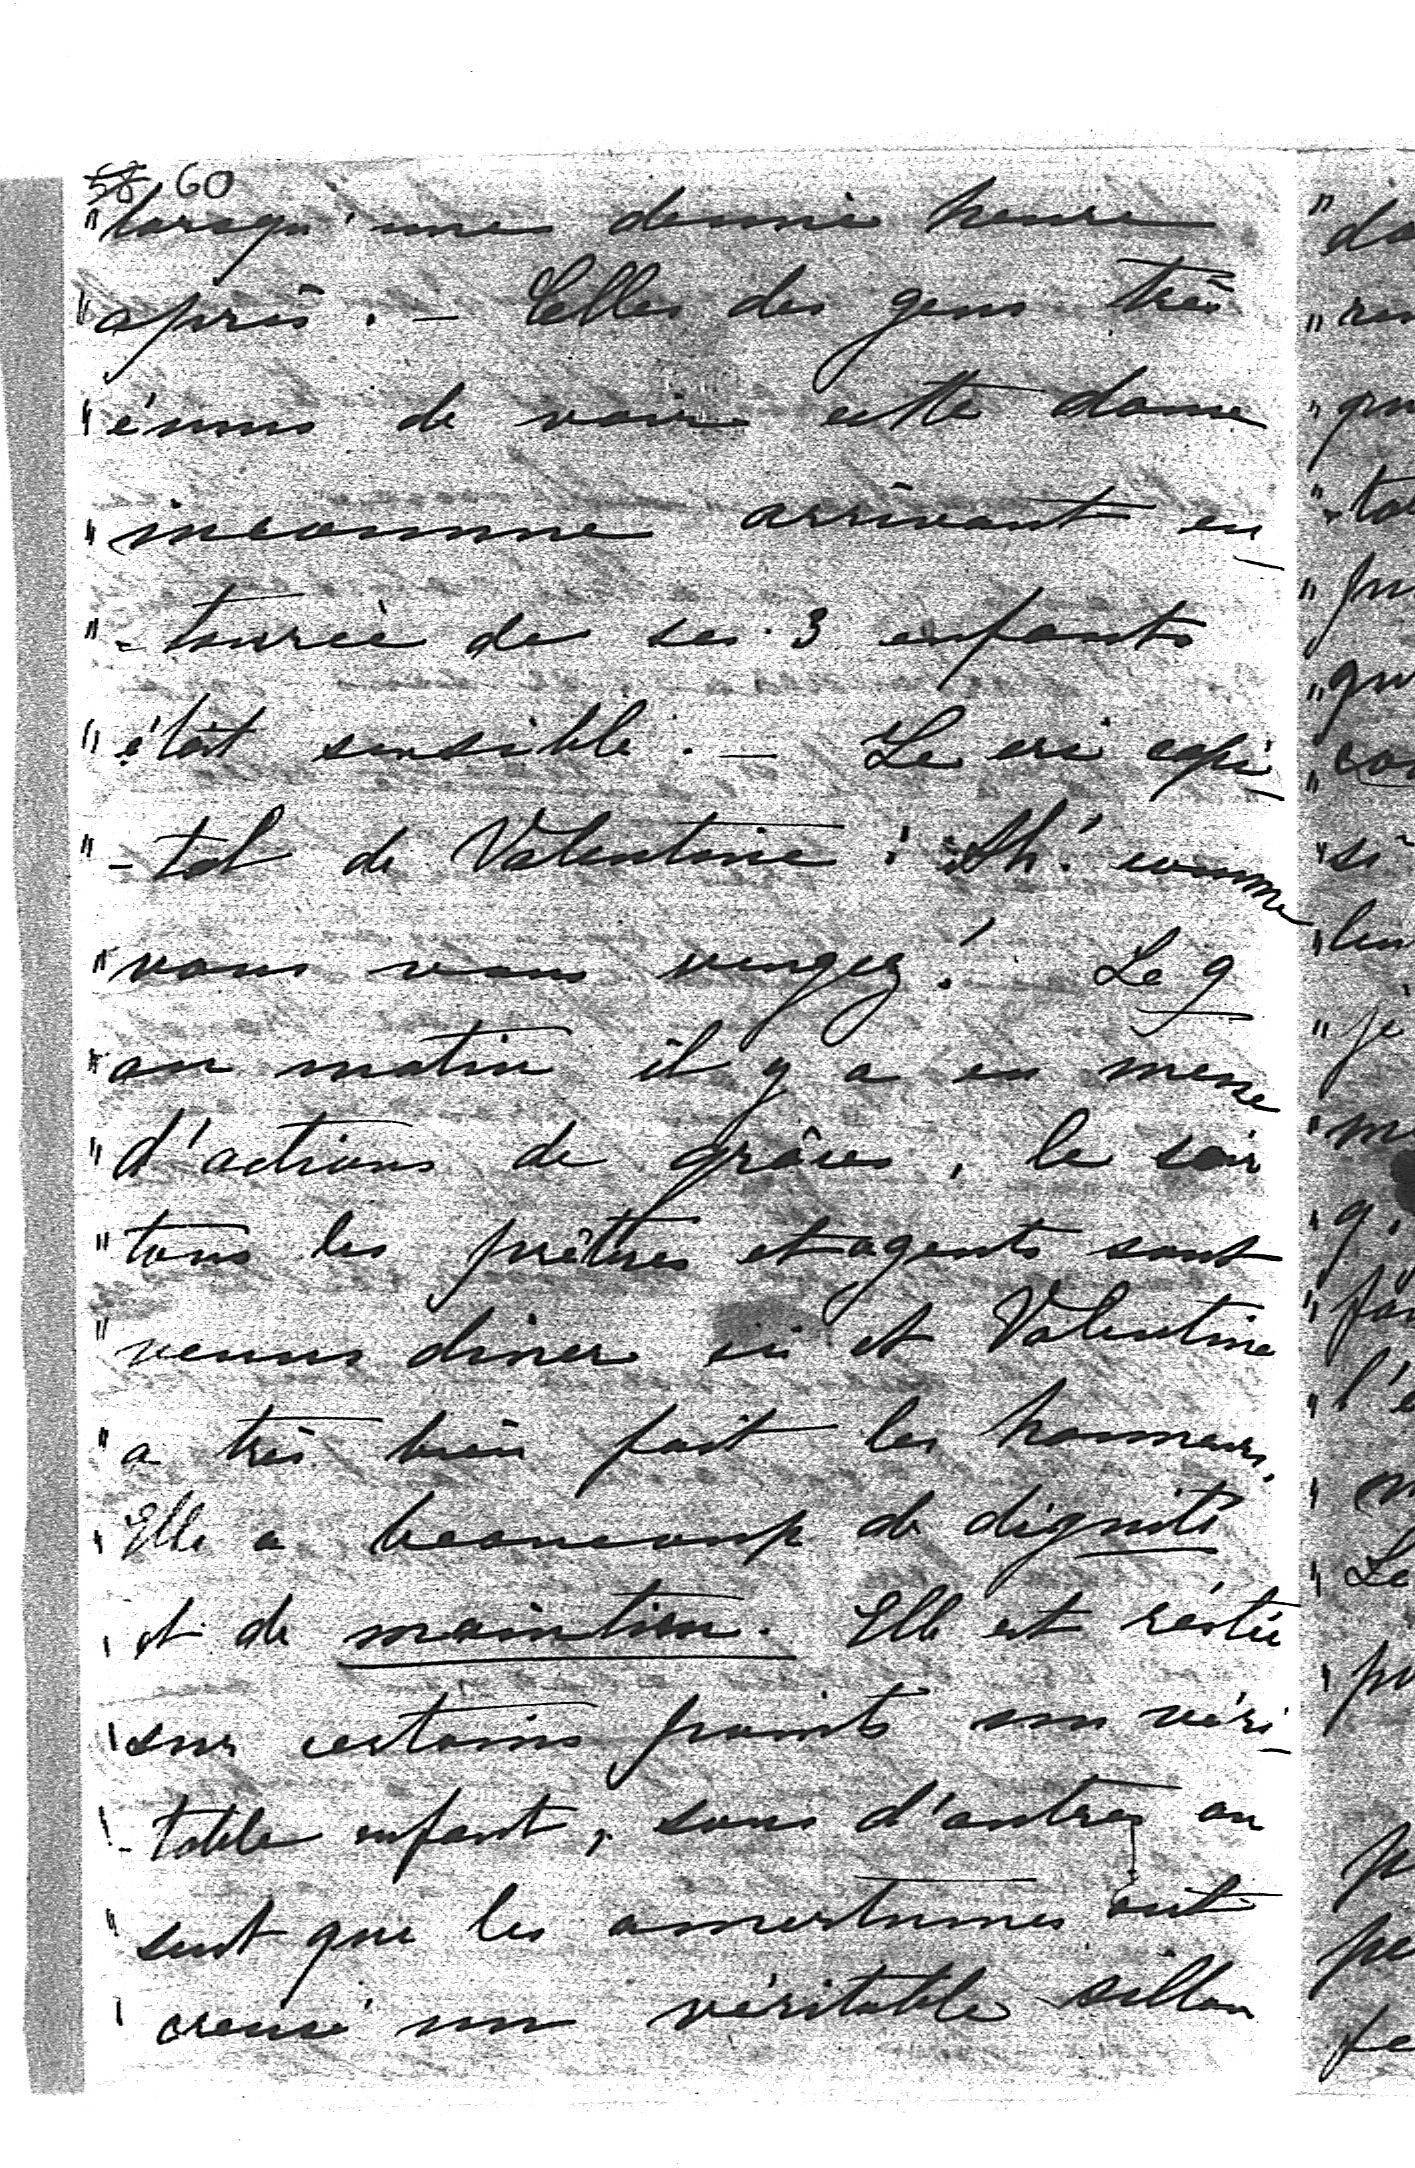 58 60
"lorsqu'une demie heure
"après. — Celles des gens très
"émus de voir cette dame
"inconnue arrivant en
"-tourée de ses 3 enfants
"était sensible. — Le cri capi
"-tal de Valentine : Ah! comme
"vous vous vengez! Le 9
"au matin il y a eu messe
"d'actions de grâces, le soir
"tous les prêtres et agents sont
"venus diner ici et Valentine
"a très bien fait les honneurs.
"Elle a beaucoup de dignité
"et de maintien. Elle est restée
"sur certains points un véri
"-table enfant, sous d'autres on
"sent que les amertumes ont
"creusé un véritable sillon